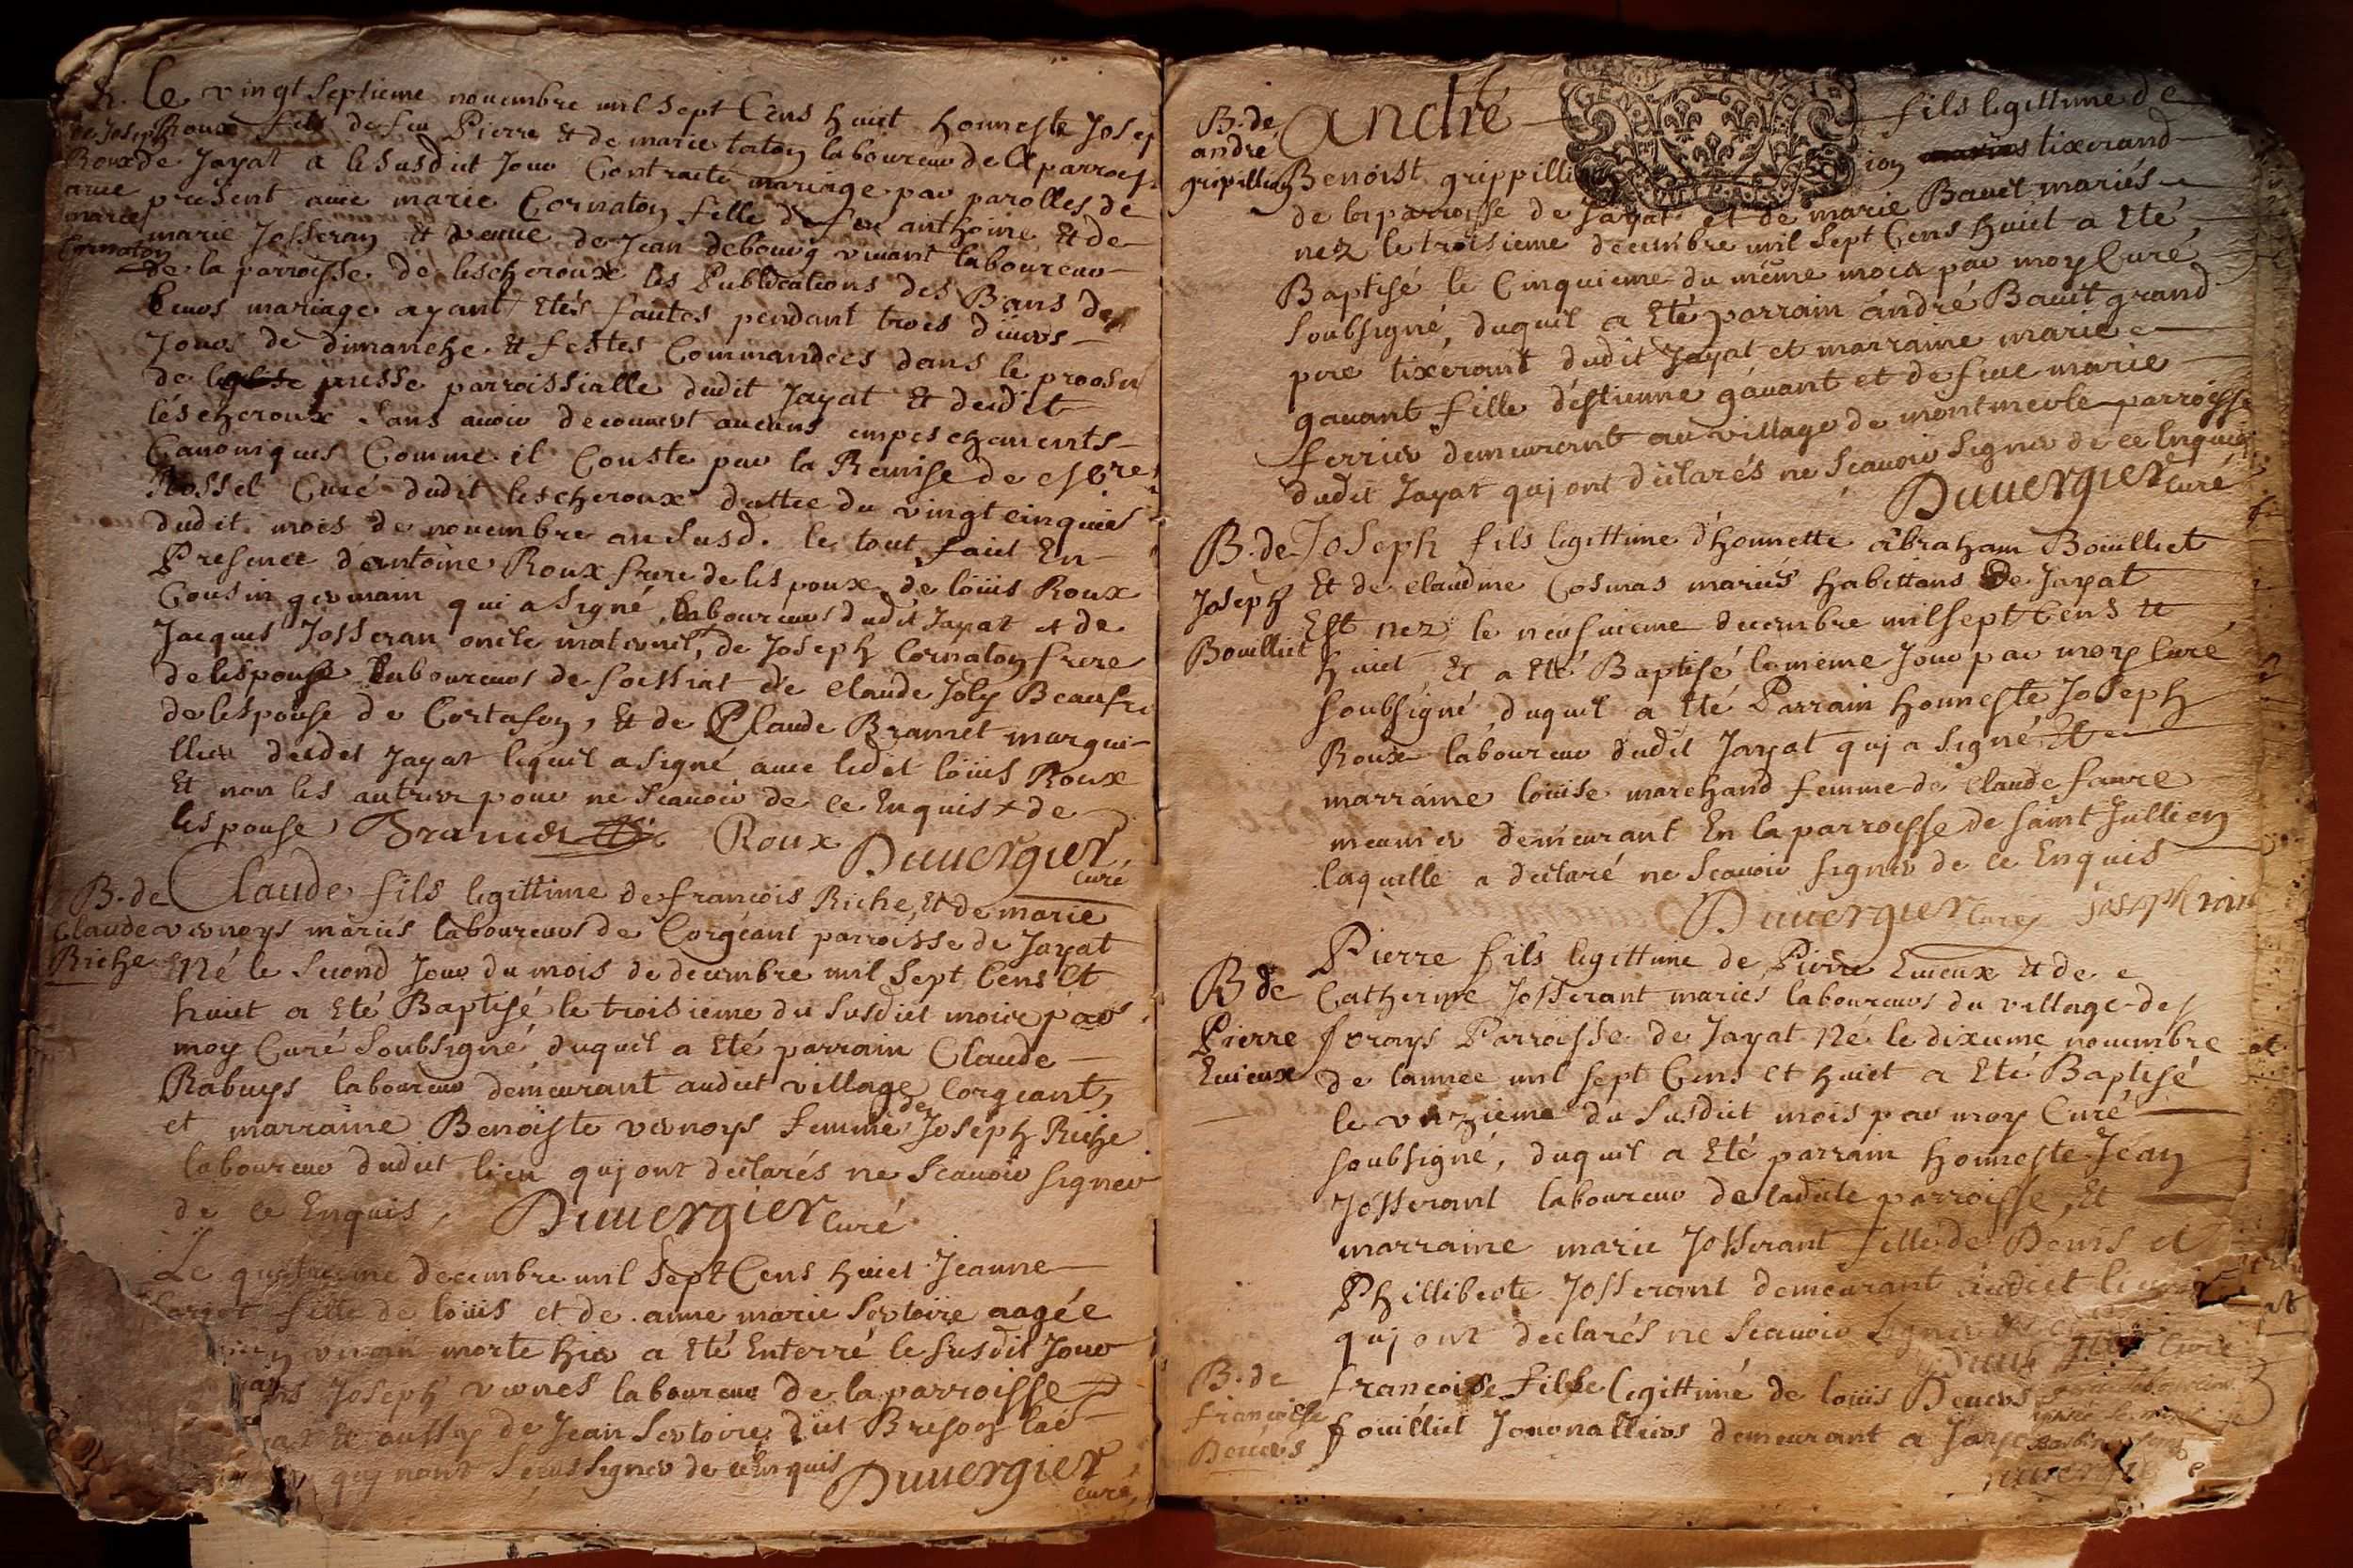 Le vingt septieme nouembre mil sept Cens huict honneste Josep
Roux fils de feu Pierre & de marie tatoy laboureur de la parroiss
de Jayat a le susdict Jour Contracté mariage par parolles de
present auec marie Cornatoy fille de feu anthoine & de
marie Josseran & veuue de Jean debourg viuant laboureur
de la parroisse de lescheroux les Publications des Bans de
leurs mariage ayant Etés faites pendant trois diuers
Jours de dimanche & festes Commandées dans le prosne
de messe parroissialle dudit Jayat & dudit
léscheroux sans auoir decouuert aucuns empeschements
Canoniques Comme il Conste par la Remise de
Rossel Curé dudit lescheroux dattée du vingt cinquie
dudit mois de nouembre an susd. le tout faict En
Presence d'antoine Roux frere de lespoux de loüis Roux
Cousin germain qui a signé, laboureurs dudit Jayat & de
Jacques Josseran oncle maternel, de Joseph Cornatoy frere
de lespouse laboureurs de foissiat de Claude Joly Beaufre
de lespouse de Cortafoy, & de Claude Bramet margui-
llier dudet Jayat lequel a signé auec ledit loüis Roux
Et non les autres pour ne scauoir de ce Enquis & de
lespouse Bramet Roux Duuergier
Curé
de Joseph
Roux
auec
marie
Cornatoy
B. de
Claude
Riche
Claude fils legittime de francois Riche, & de marie
vernoys mariés laboureurs de Corgeant parroisse de Jayat
Né le second Jour du mois de decembre mil sept Cens Et
huict a Eté Baptisé le troisieme du susdict mois par
moy Curé soubsigné, duquel a Eté parrain Claude
Rabuys laboureur demeurant audict village Corgeant,
de
et marraine Benoiste vernoys femme Joseph Riche
laboureur dudict lieu quj ont déclarés ne scauoir signer
de ce Enquis, Duuergier Curé
Le quatrieme decembre mil sept Cens huict Jeanne
fille de loüis et de anne marie sertoire aagée
morte hier a Eté Enterré le susdit Jour
Joseph vernes laboureur de la parroisse
& aussy de Jean Sertoire dict Bresoy
quj nont signer de ce Enquis Duuergier
Curé
B. de
andre
gripillioy
andré fils legittime de
Benoist grippilli ioy tixerand
de la parroisse de Jayat et de marie Bauet mariés
nez le troisieme decembre mil sept Cens huict a Eté
Baptisé le Cinquieme du méme mois par moy Curé
soubsigné, duquel a Eté parrain andré Bauet grand
pere tixerant dudit Jayat et marraine marie
gauant fille d'estienne gauant et de feue marie
ferrier demeurant au village de montmerle parroisse
dudit Jayat quj ont déclarés ne scauoir signer de ce Enquis
Duuergier Curé
B. de
Joseph
Bouilliet
Joseph fils legittime d'honnette abraham Boüilliet
Et de claudine Cosmas mariés habittans de Jayat
Est nez le neufuieme decembre mil sept Cens &
huict Et a Eté Baptisé le méme Jour par moy Curé
soubsigné, duquel a Eté Parrain honneste Joseph
Roux laboureur dudit Jayat quj a signé Et
marraine loüise marchand femme de Claude faure
meunier demeurant En la parroisse de saint Jullien
laquelle a déclaré ne scauoir signer de ce Enquis
Duuergier Curé joseph
B de
Pierre
Euieux
Pierre fils legittime de Pierre Euieux Et de
Catherine Josserant mariés laboureurs du village des
Parroisse de Jayat Né le dixieme nouembre
de lannée mil sept Cens Et huict a Eté Baptisé
le vnzieme du susdict mois par moy Curé
soubsigné, duquel a Eté parrain honneste Jean
Josserant laboureur de ladicte parroisse, Et
marraine marie Josserant fille de Denis et
Philliberte Josserant demeurant audict lieu
quj ont declarés ne scauoir signer
Curé
B. de
francoise
Deuers
francoise fille legittime de loüis Deuers
fouilliet Journalliers demeurant a Jaya